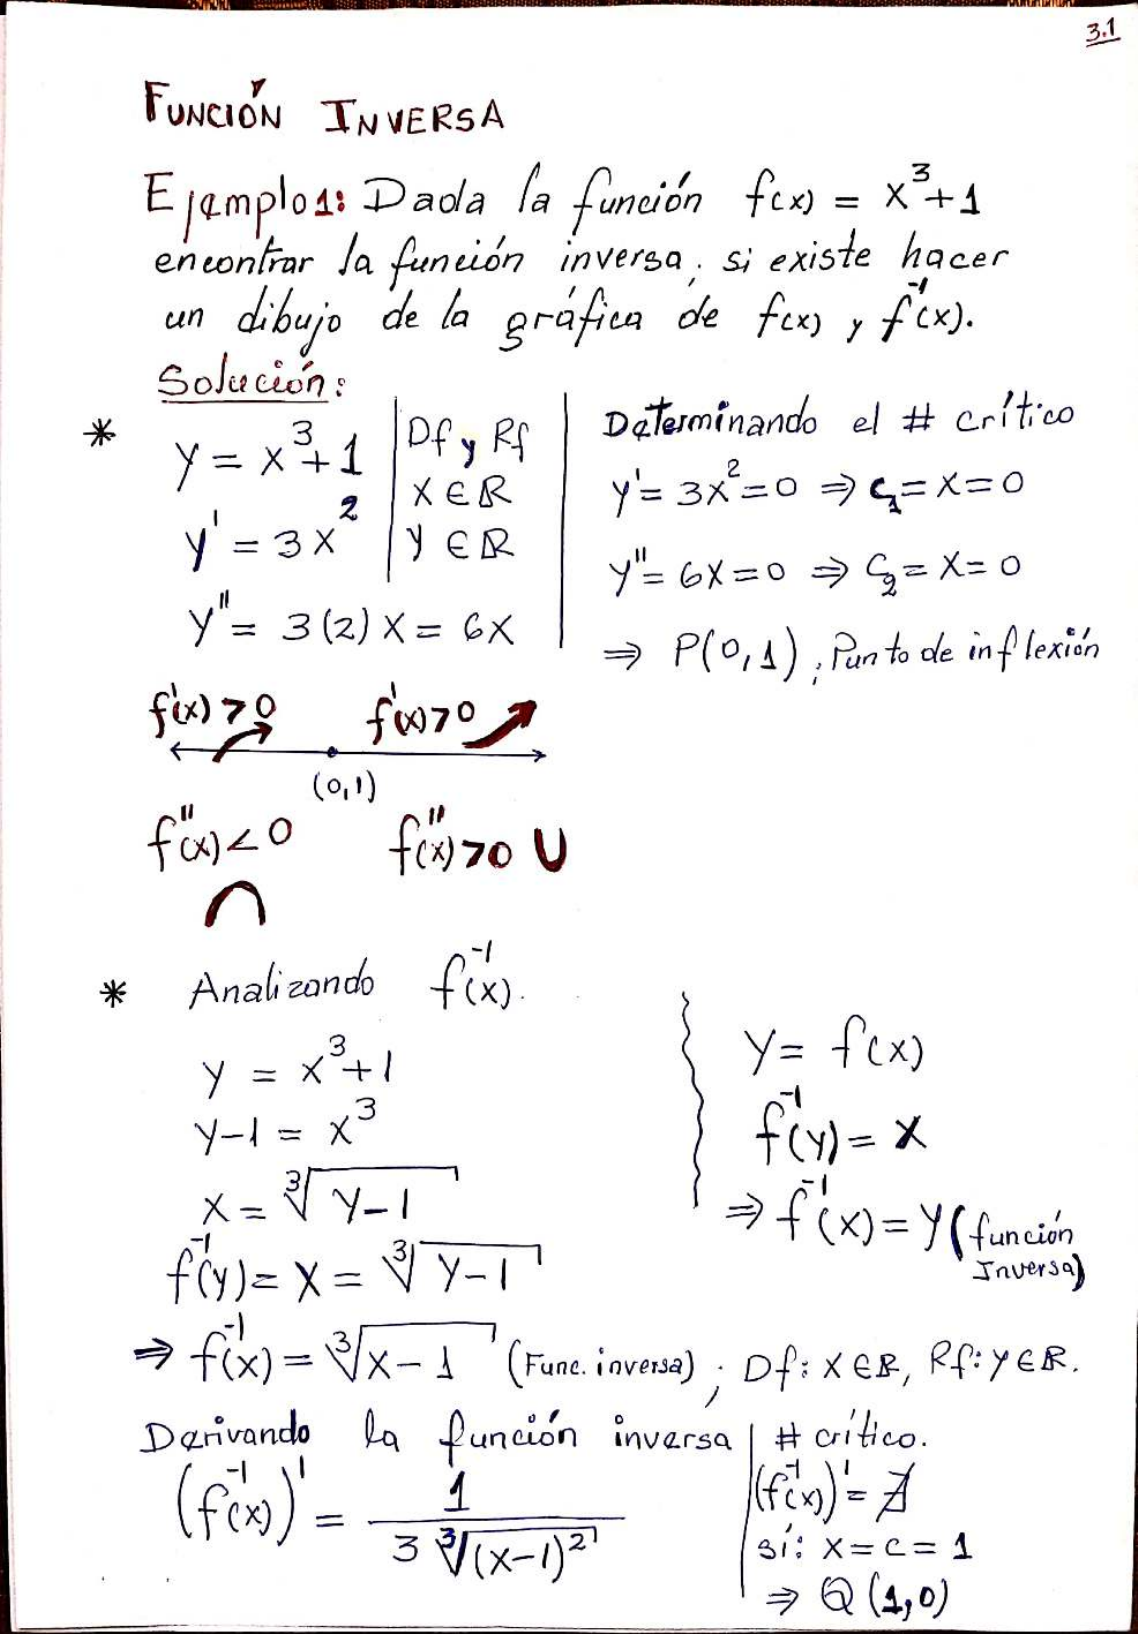 3.1
FUNCIÓN INVERSA
Ejemplo 1: Dada la función f(x) = x³+1
encontrar la función inversa; si existe hacer
un dibujo de la gráfica de f(x) y f⁻¹(x).
Solución:
* y = x³+1
y' = 3x²
y'' = 3(2)x = 6x
Df y Rf
x ∈ ℝ
y ∈ ℝ
Determinando el # crítico
y' = 3x² = 0 ⇒ c₁ = x = 0
y'' = 6x = 0 ⇒ c₂ = x = 0
⇒ P(0,1); Punto de inflexión
f'(x) > 0 f'(x) > 0
(0,1)
f''(x) < 0 f''(x) > 0 ∪
∩
* Analizando f⁻¹(x).
y = x³+1
y-1 = x³
x = ∛(y-1)
f⁻¹(y) = x = ∛(y-1)
y = f(x)
f⁻¹(y) = x
⇒ f⁻¹(x) = y (función
Inversa)
⇒ f⁻¹(x) = ∛(x-1) (Func. inversa); Df: x ∈ ℝ, Rf: y ∈ ℝ.
Derivando la función inversa
(f⁻¹(x))' = 1 / (3 ∛(x-1)²)
# crítico.
(f⁻¹(x))' = ∄
sí: x = c = 1
⇒ Q(1,0)